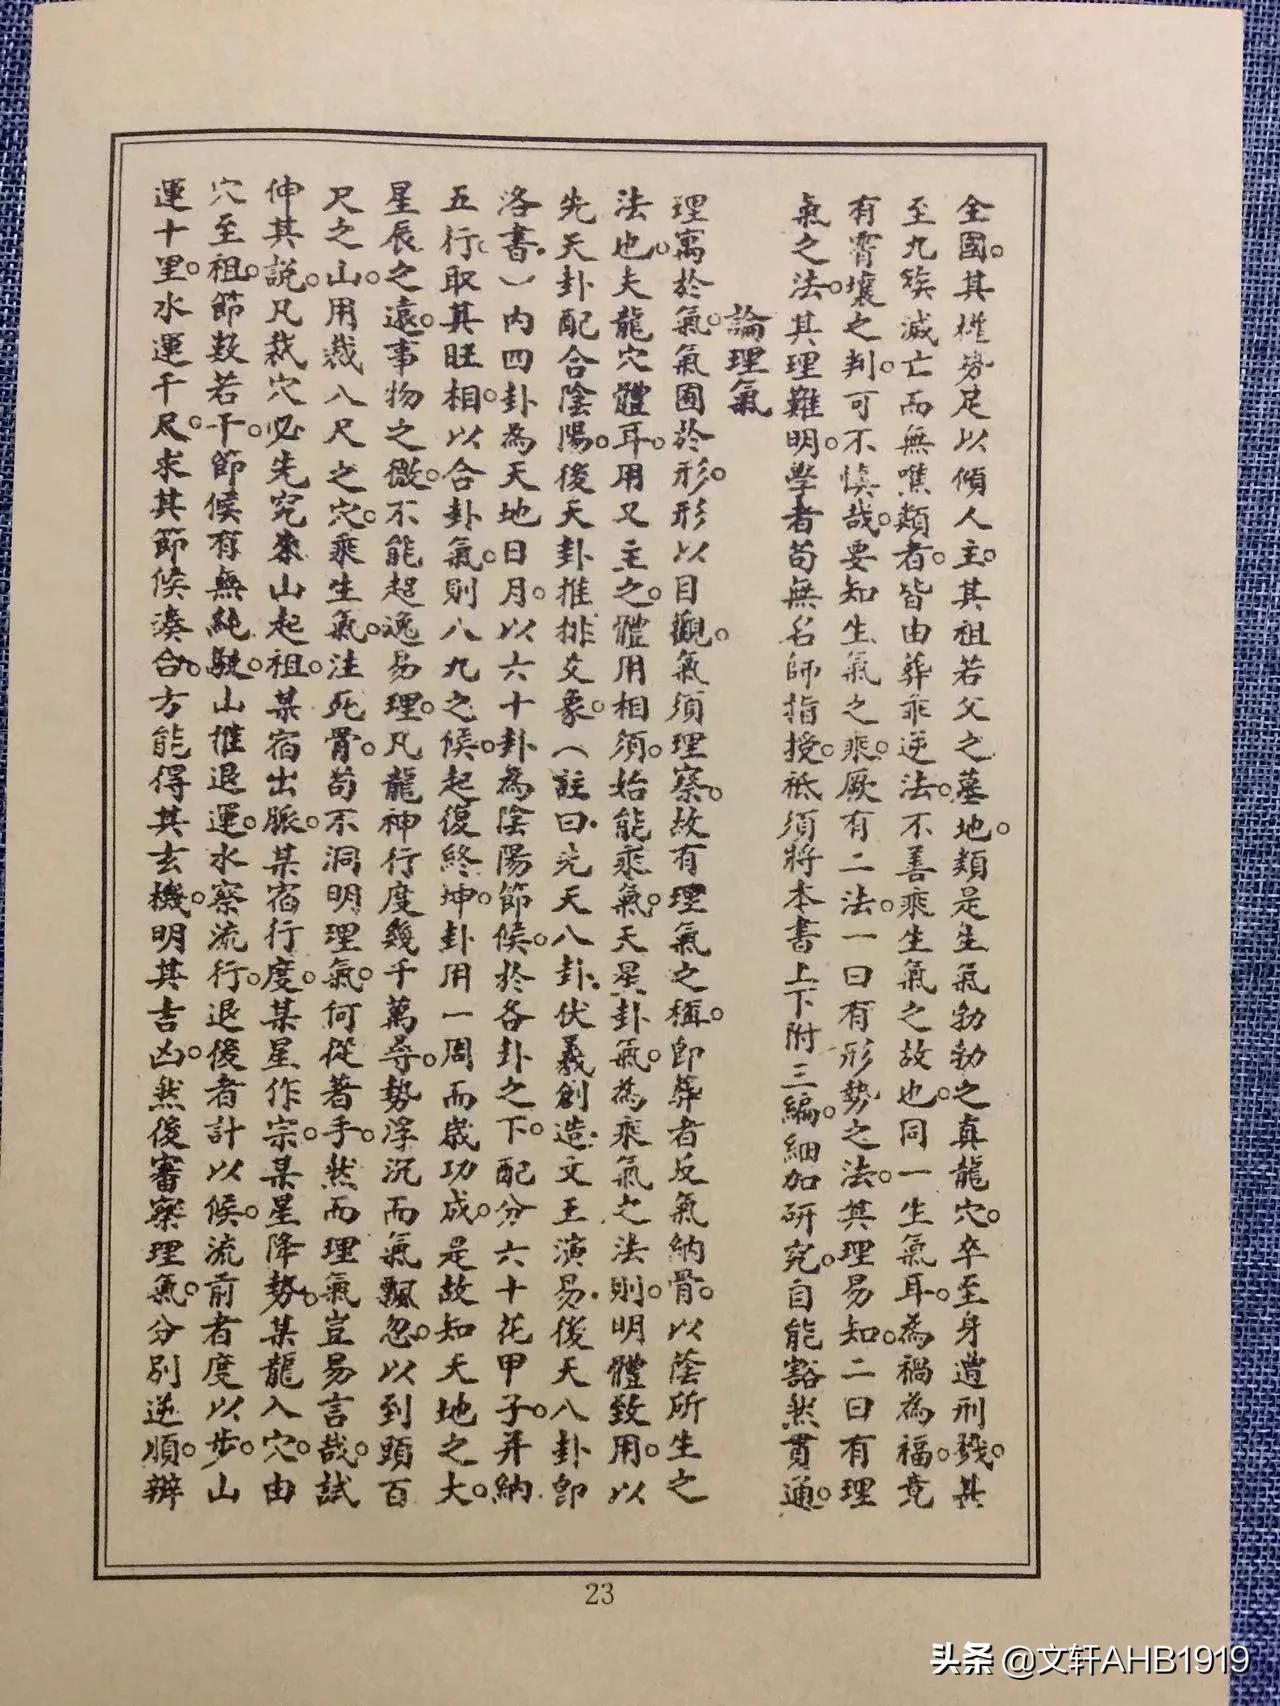 全國。其權勢足以傾人主。其祖若父之墓地。類是生氣勃勃之真龍穴。卒至身遭刑戮。甚
至九族滅亡而無噍類者。皆由葬乖逆法。不善乘生氣之故也。同一生氣耳。為禍為福。竟
有霄壤之判。可不慎哉。要知生氣之乘。厥有二法。一曰有形勢之法。其理易知。二曰有理
氣之法。其理難明。學者苟無名師指授。祗須將本書上下附三編。細加研究。自能豁然貫通。
論理氣
理寓於氣。氣囿於形。形以目觀。氣須理察。故有理氣之稱。即葬者反氣納骨。以蔭所生之
法也。夫龍穴體耳。用又主之。體用相須。始能乘氣。天星卦氣。為乘氣之法則。明體致用。以
先天卦配合陰陽。後天卦推排爻象。（註曰．先天八卦．伏羲創造．文王演易．後天八卦即
洛書．）內四卦為天地日月。以六十卦為陰陽節候。於各卦之下。配分六十花甲子。并納
五行。取其旺相。以合卦氣。則八九之候。起復終坤。卦用一周而歲功成。是故知天地之大。
星辰之遠。事物之微。不能超逸易理。凡龍神行度幾千萬尋。勢浮沉而氣飄忽。以到頭百
尺之山。用裁八尺之穴。乘生氣。注死骨。苟不洞明理氣。何從著手。然而理氣豈易言哉。試
伸其說。凡裁穴必先究來山起祖。某宿出脈。某宿行度。某星作宗。某星降勢。某龍入穴。由
穴至祖。節數若干。節候有無純駁。山推退運。水察流行。退後者計以候。流前者度以步。山
運十里。水運千尺。求其節候湊合。方能得其玄機。明其吉凶。然後審察理氣。分別逆順。辨
23
头条 @文轩AHB1919